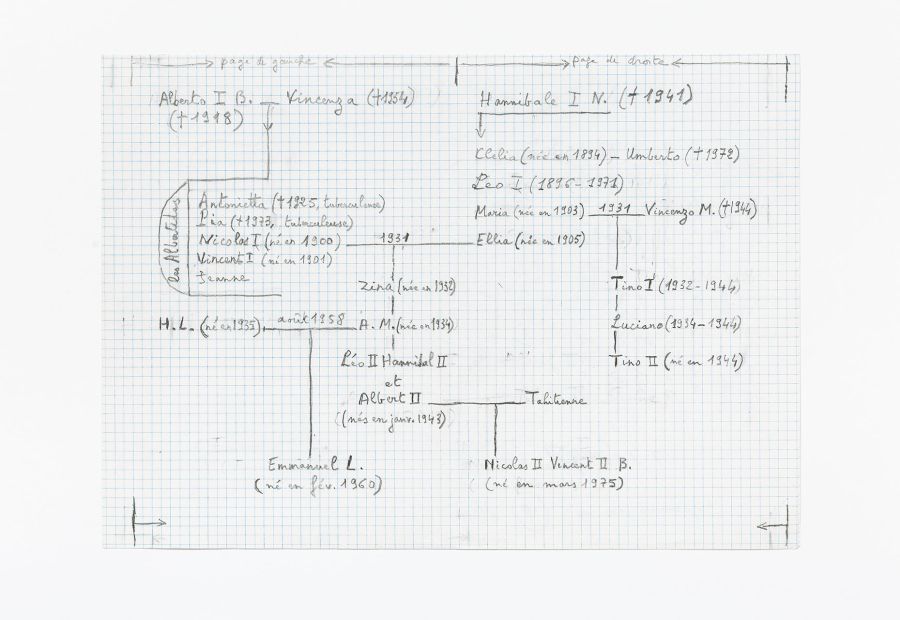 page de gauche
page de droite
Alberto I B. — Vincenza (†1954)
(†1918)
Hannibale I N. (†1941)
Clelia (née en 1894) – Umberto (†1972)
Léo I (1896-1971)
Maria (née en 1903) 1931 Vincenzo M. (†1944)
Ellia (née en 1905)
les Albertelas
Antonietta (†1925, tuberculeuse)
Pia (†1973, tuberculeuse)
Nicolas I (né en 1900) 1931
Vincent I (né en 1901)
Jeanne
Zina (née en 1932)
Tino I (1932-1944)
H.L. (né en 1935) août 1958 A.M. (née en 1934)
Luciano (1934-1944)
Léo II Hannibal II
Tino II (né en 1944)
et
Albert II
Tahitienne
(nés en janv. 1943)
Emmanuel L.
(né en fév. 1960)
Nicolas II Vincent II B.
(né en mars 1975)